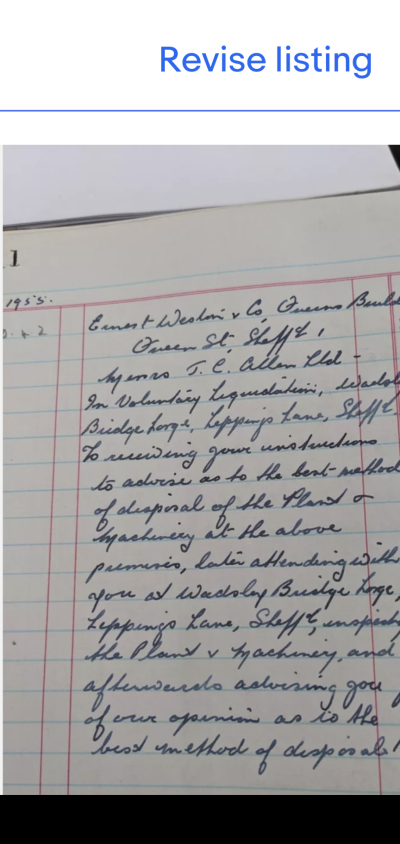 Revise listing
1
1955.
Ernest Weston & Co, Queens Build
Queen St, Sheff'd,
Messrs T. C. Allen Ltd -
In Voluntary Liquidation, Wadsl
Bridge Forge, Leppings Lane, Sheff'd.
To receiving your instructions
to advise as to the best method
of disposal of the Plant &
Machinery at the above
premises, later attending with
you at Wadsley Bridge Forge,
Leppings Lane, Sheff'd, inspect
the Plant & Machinery, and
afterwards advising you
of our opinion as to the
best method of disposal